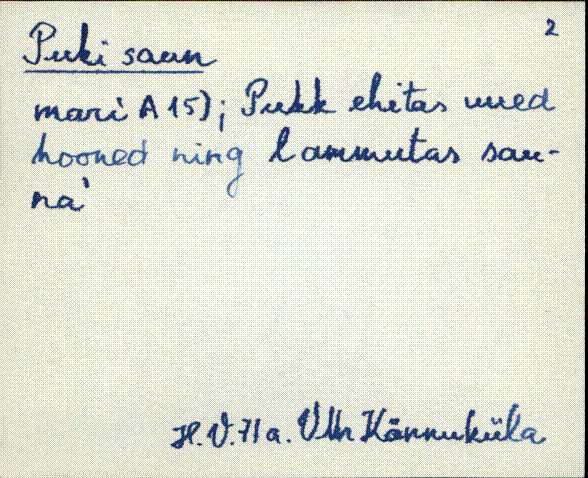 2
Puki saun
mari A 15); Pukk ehitas uued
hooned ning lammutas sau-
na'
H. V. 71 a. VMr Kännuküla